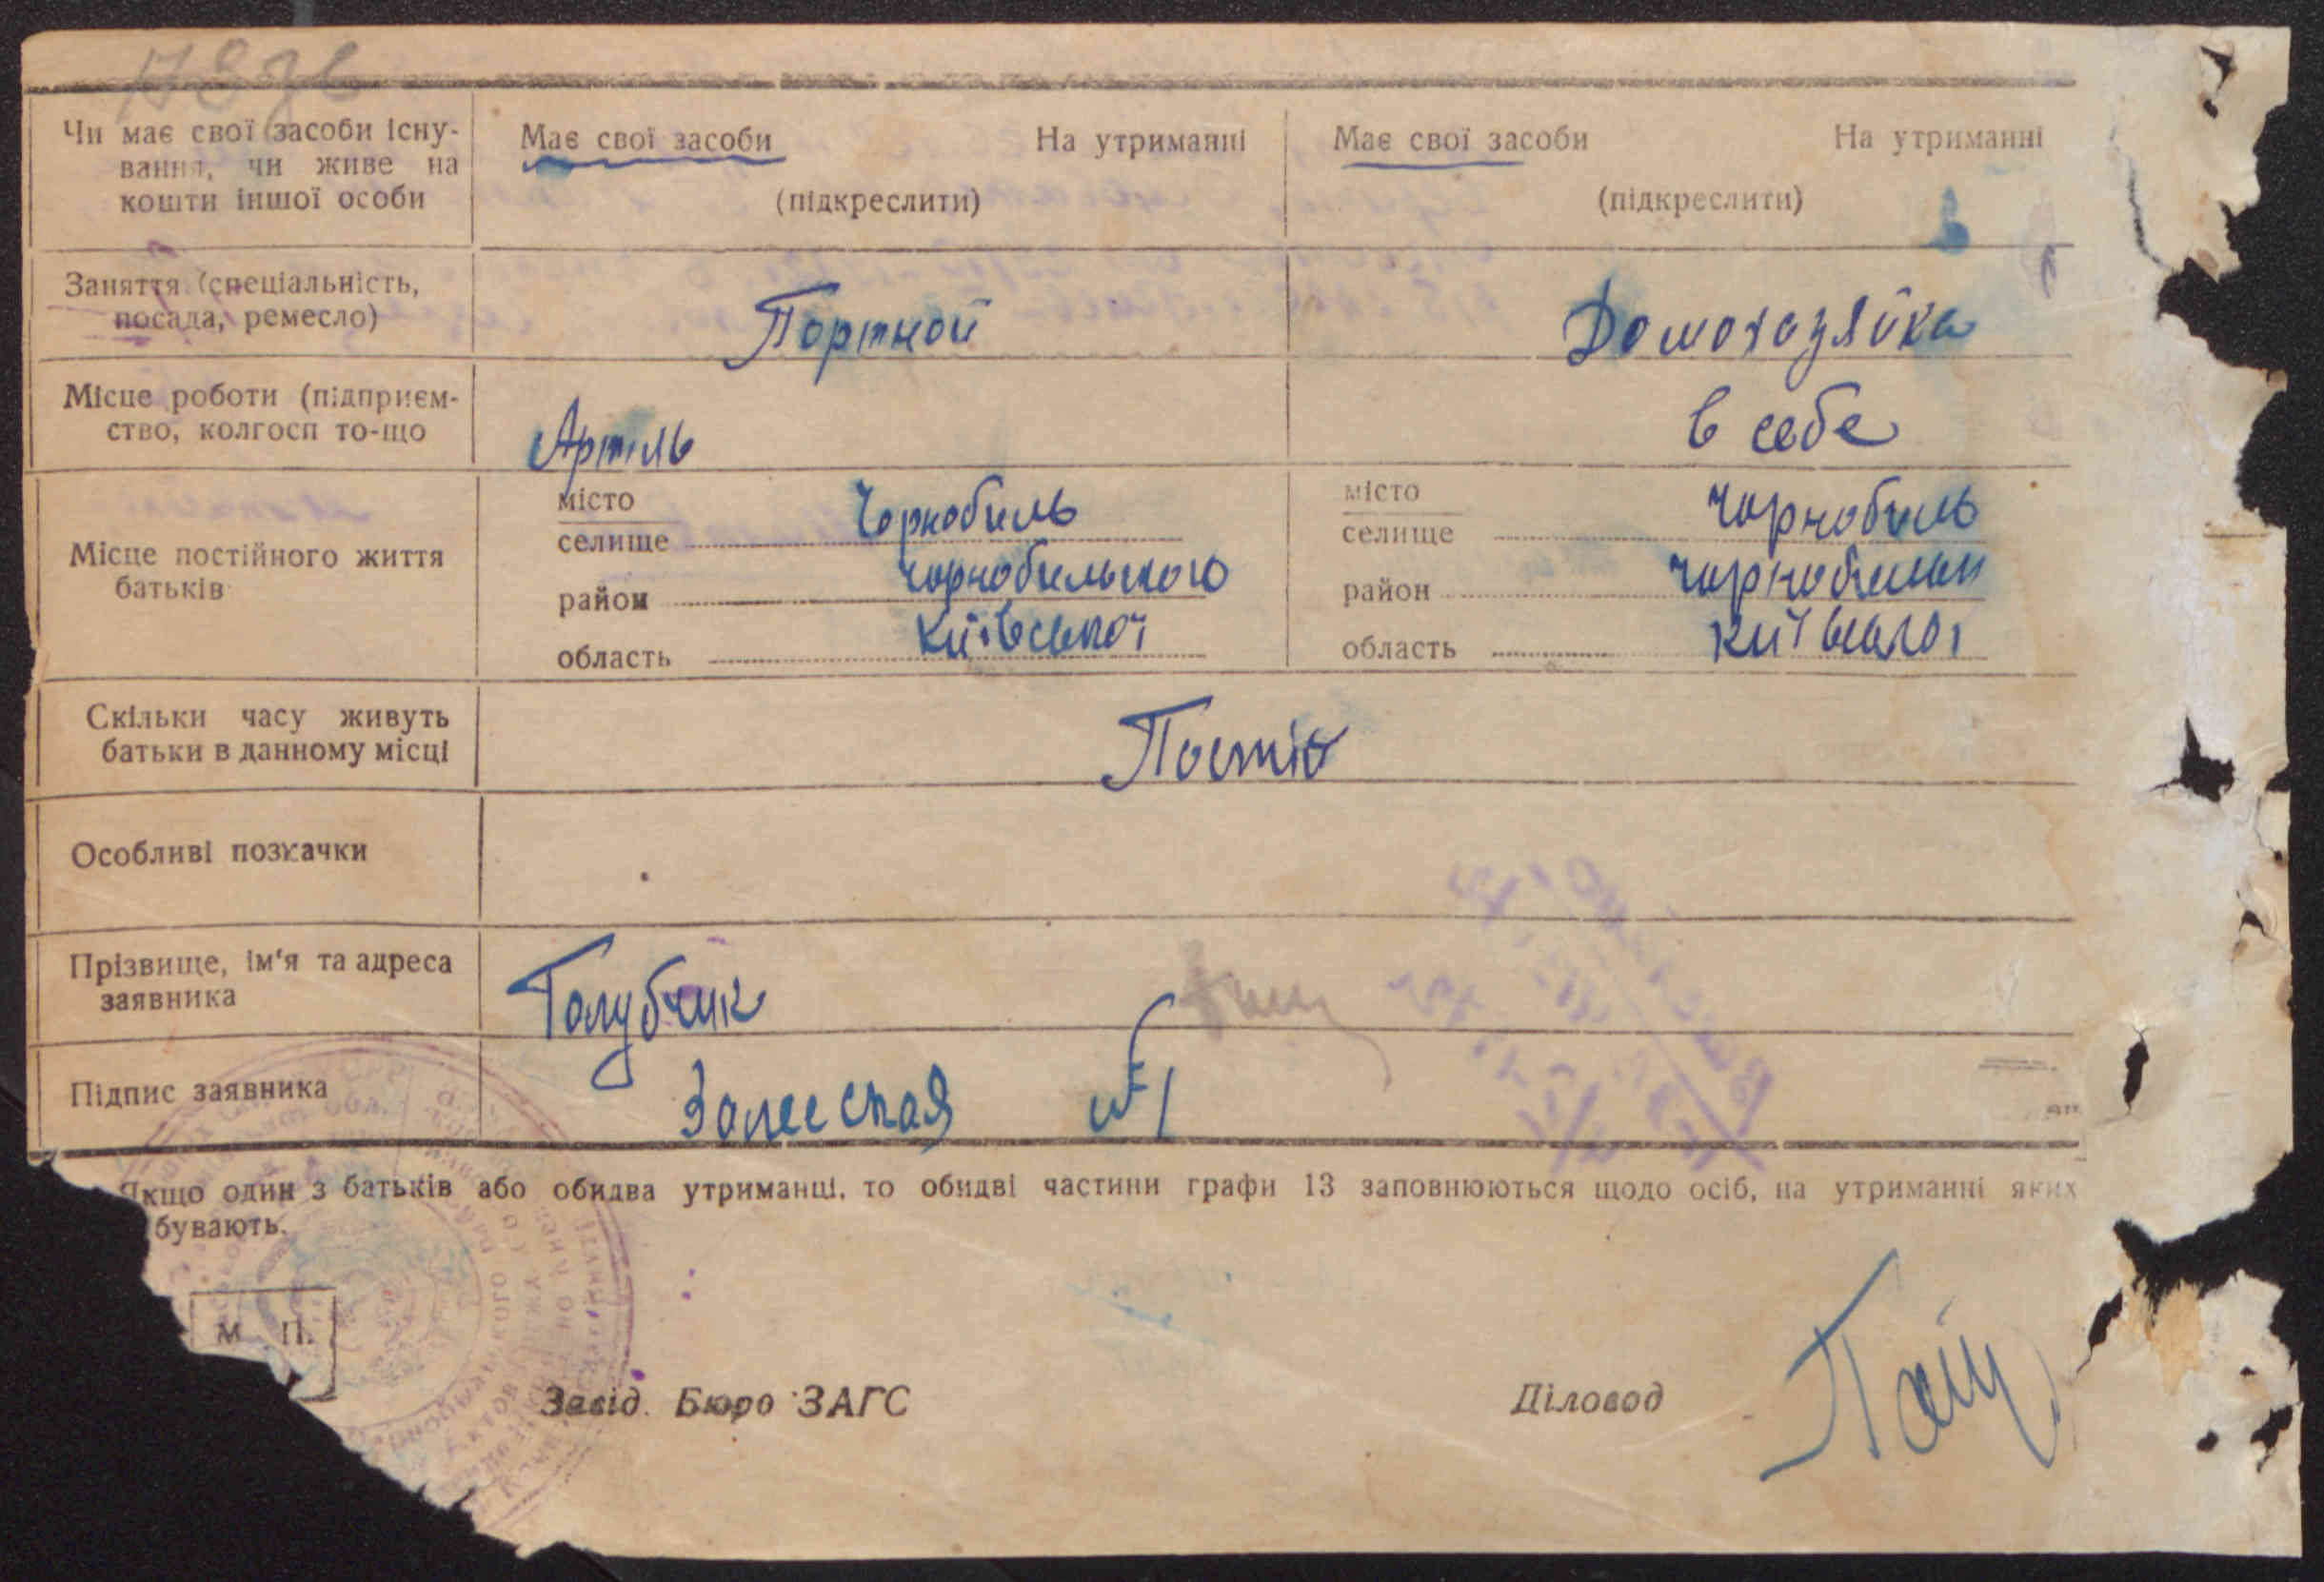 Чи має свої засоби існу-
вання, чи живе на
кошти іншої особи
Має свої засоби На утриманні
(підкреслити)
Має свої засоби На утриманні
(підкреслити)
Заняття (спеціальність,
посада, ремесло)
Портной
Домохазяйка
Місце роботи (підприєм-
ство, колгосп то-що
Артиль
в себе
Місце постійного життя
батьків
місто
селище Чорнобиль
район Чорнобильського
область Київської
місто
селище Чорнобиль
район
область
Скільки часу живуть
батьки в данному місці
Особливі позначки
Прізвище, ім'я та адреса
заявника
Голубчик
Підпис заявника
Залесская №1
Якщо один з батьків або обидва утриманці, то обидві частини графи 13 заповнюються щодо осіб, на утриманні яких
бувають.
М. П.
Завід. Бюро ЗАГС
Діловод